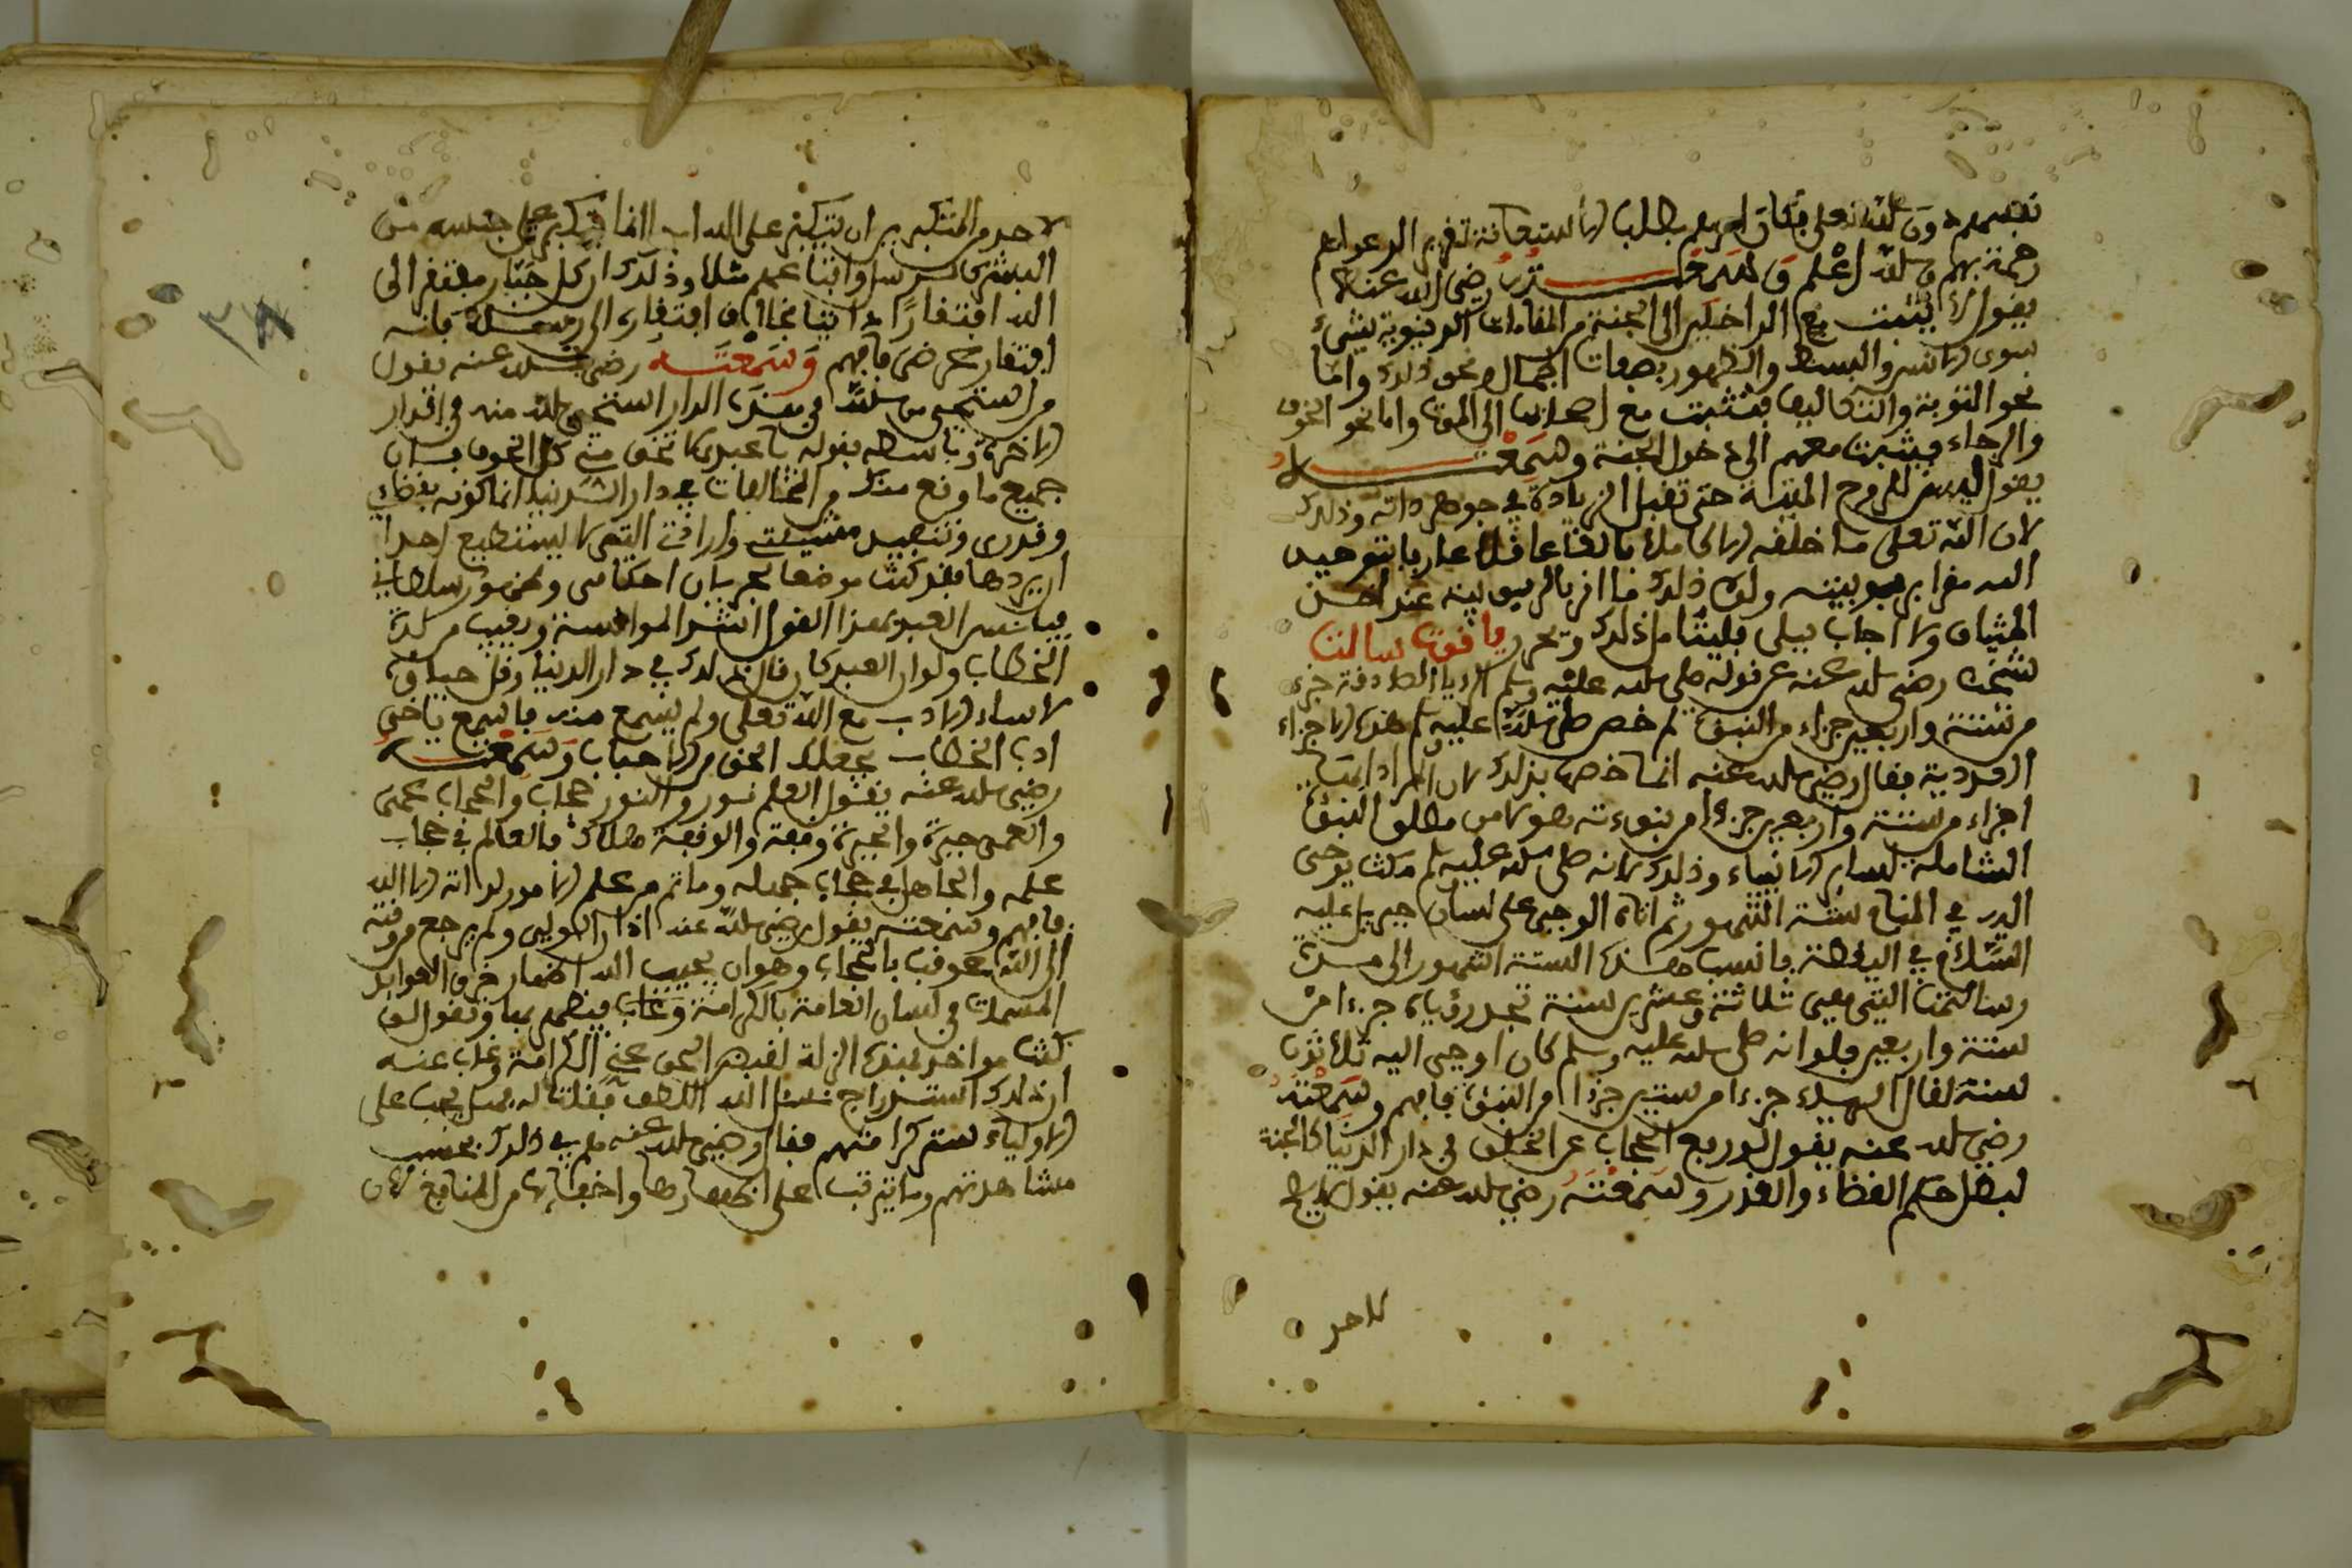 نفسه دون الله تعلى فقال لم يعلم بطلب الاستعانة تقرير الدعواهم
رحمة بهم والله أعلم وسمعته رضي الله عنه
يقول لا يثبت مع الداخلين الى الجنة من المقامات الدنيوية شيء
سوى الانس والبسط والظهور بصفات الجمال ونحو ذلك واما
نحو التوبة والتكاليف فتثبت مع اصحابها الى الموت واما نحو الخوف
والرجاء فيثبت معهم الى دخول الجنة وسمعته
يقول ليس للروح المدبرة حتى تقبل الزيادة في جوهر ذاته وذلك
لان الله تعلى ما خلقه الا كاملا بالغا عاقلا عارفا بتوحيد
الله مقرا بربوبيته ولولا ذلك ما اقر بالربوبية عند اخذ
الميثاق ولا اجاب ببلى فليتامل ذلك ويحرر ياقوت سالت
شيخنا رضي الله عنه عن قوله صلى الله عليه وسلم الرويا الصادقة جزء
من ستة واربعين جزاء من النبوة لم خص صلى الله عليه وسلم هذه الاجزاء
الفردية فقال رضي الله عنه انما خصها بذلك لان المراد انها
اجزاء من ستة واربعين جزءا من نبوءته هو لا من مطلق النبوة
الشاملة لساير الانبياء وذلك لانه صلى الله عليه وسلم مكث يوحى
اليه في المنام ستة اشهر ثم اتاه الوحي على لسان جبريل عليه
السلام في اليقظة فانسب هذه الستة اشهر الى مدة
رسالته التي هي ثلاثة وعشرين سنة تجد رؤياه جزءا من
ستة واربعين فلو انه صلى الله عليه وسلم كان اوحي اليه ثلاثين
سنة لقال الرويا جزءا من ستين جزءا من النبوة فافهم وسمعته
رضي الله عنه يقول لو رفع الحجاب عن الخلق في دار الدنيا كالجنة
لبطل حكم القضاء والقدر وسمعته رضي الله عنه يقول لا يصح
لاحد
لاحد من المتكبرين ان يتكبر على الله ابدا انما يتكبر على جنسه من
البشر كالرسل واتباعهم مثلا وذلك ان كل جبار مفتقر الى
الله افتقارا ذاتيا بخلاف افتقاره الى رسله فانه
افتقار عرضي فافهم وسمعته رضي الله عنه يقول
من استحيى من الله في هذه الدار استحيى الله منه في الدار
الاخرة وباسطه بقوله يا عبدي لا تخف مني كل الخوف فان
جميع ما وقع منك من المخالفات في دار الدنيا انما كونه بقضائي
وقدري وتنفيذ مشيئتي وارادتي التي لا يستطيع احدا
ان يردها فقد كنت موضعا لجريان احكامي وظهور سلطاني
فيانس العبد بهذا القول اشد الموانسة ويغيب من لذة
الخطاب ولو ان العبد كان قال ذلك في دار الدنيا وقل حياؤه
لاساء الادب مع الله تعلى ولم يسمع منه فاسمع يا اخي
ادب الخطاب يجعلك الحق من الاحباب وسمعته
رضي الله عنه يقول العلم نور والنور حجاب والحجاب عمى
والعمى حيرة والحيرة وقفة والوقفة هلاك فالعالم في حجاب
علمه والجاهل في حجاب جهله وما ثم من علم الامور لذاته الا الله
فافهم وسمعته يقول رضي الله عنه اذا زل الولي ولم يرجع من وقته
الى الله عوقب بالحجاب وهو ان يحبب الله اظهار خرق العوايد
المسمات في لسان العامة بالكرامة وغاب فيظهر بها ويقول لو
كنت مواخذا بهذه الزلة لقبض الحق عني الكرامة وغاب عنه
ان ذلك استدراج نسئل الله اللطف فقلت له فهل يجب على
الاولياء ستر كرامتهم فقال رضي الله عنه هم في ذلك بحسب
مشاهدتهم وما يترتب على اظهارها واخفائها من المنافع لان